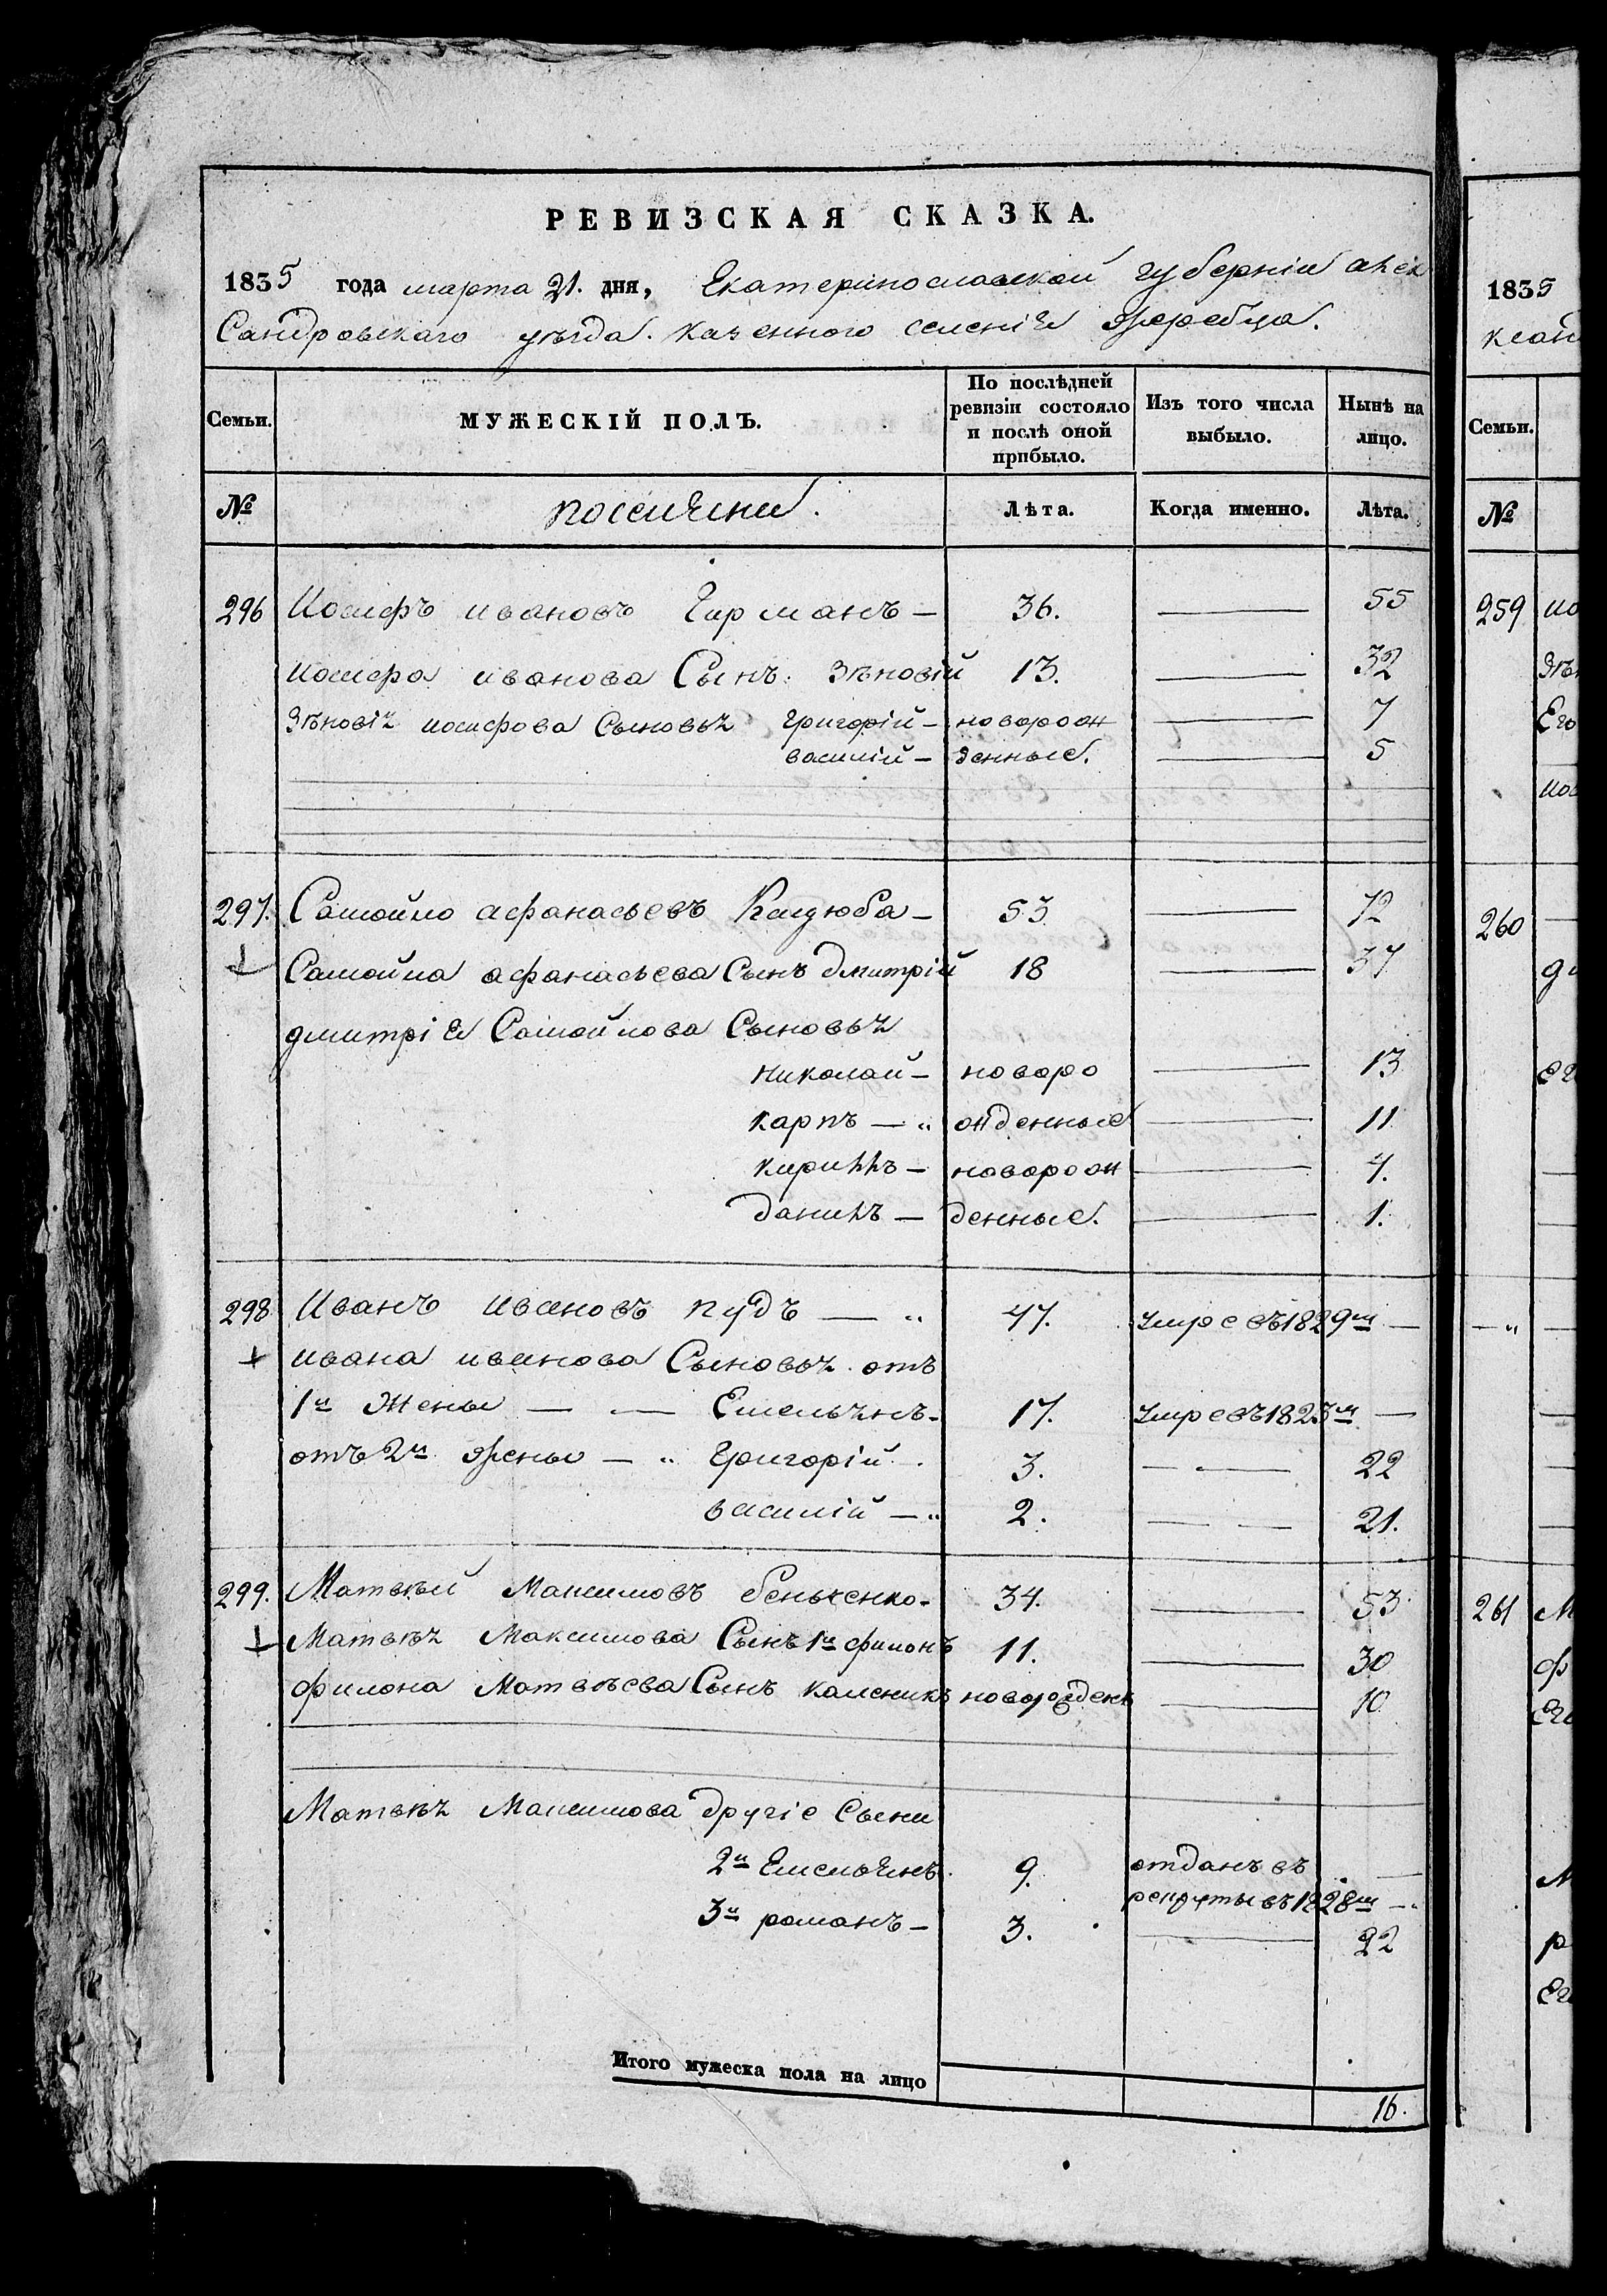 РЕВИЗСКАЯ СКАЗКА.
1835 года марта 21. дня, Екатеринославской губерніи алек
сандровскаго уѣзда. казенного селенія жеребца.
Семьи. МУЖЕСКІЙ ПОЛЪ. По послѣдней ревизіи состояло и послѣ оной прибыло. Изъ того числа выбыло. Нынѣ на лицо.
№ поселяни. Лѣта. Когда именно. Лѣта.
296 Иосифъ ивановъ Гирманъ — 36. — 55
иосифа иванова Сынъ Зѣновій 13. — 32
Зѣновіѧ иосифова Сыновьѧ Григорій — наворож — 7
василій — денные. — 5
297. Самойло афанасьевъ Кадюба — 53 — 72
Самойла афанасьева Сынъ дмитрій 18 — 37
дмитріѧ Самойлова Сыновьѧ
николай — новоро — 13
карпъ — „ жденные — 11
кирилъ — новорож — 4.
данилъ — денные. — 1.
298 Иванъ ивановъ пудъ — „ 47. умре въ 1829м —
ивана иванова Сыновьѧ отъ
1й жены — — Емельѧнъ — 17. умре въ 1823м —
отъ 2й жены — „ Григорій 3. — — 22
василій — „ 2. — — 21.
299. Матвѣй Максимовъ беньченко — 34. — 53
Матвѣѧ Максимова Сынъ 1й филонъ 11. — 30
филона Матвѣева Сынъ каленикъ новорожденъ — 10
Матвѣѧ Максимова другіе Сыни
2й Емельѧнъ 9. отданъ въ —
рекруты въ 1828м —
3й романъ — 3. — 22
Итого мужеска пола на лицо 16.
1835
ксан
Семьи.
№
259 ио
Зѣн
Его
иос
260 —
ди
ег
— „ —
261 М
ф
Ег
М
р
Ег